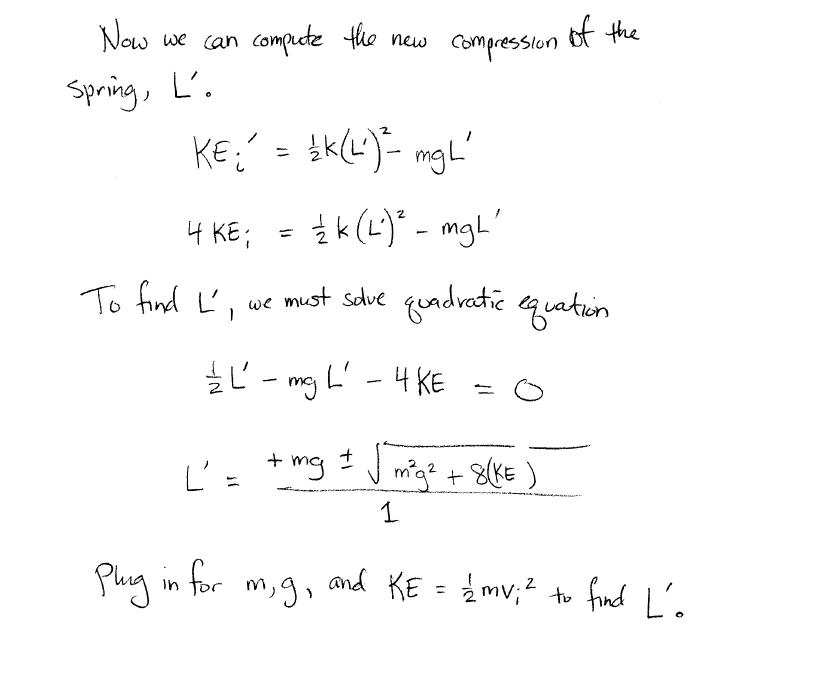 Now we can compute the new compression of the
spring, L'.
KEᵢ' = ½k(L')² - mgL'
4 KEᵢ = ½k(L')² - mgL'
To find L', we must solve quadratic equation
½L' - mg L' - 4KE = 0
L' = (+mg ± √(m²g² + 8(KE))) / 1
Plug in for m, g, and KE = ½mvᵢ² to find L'.